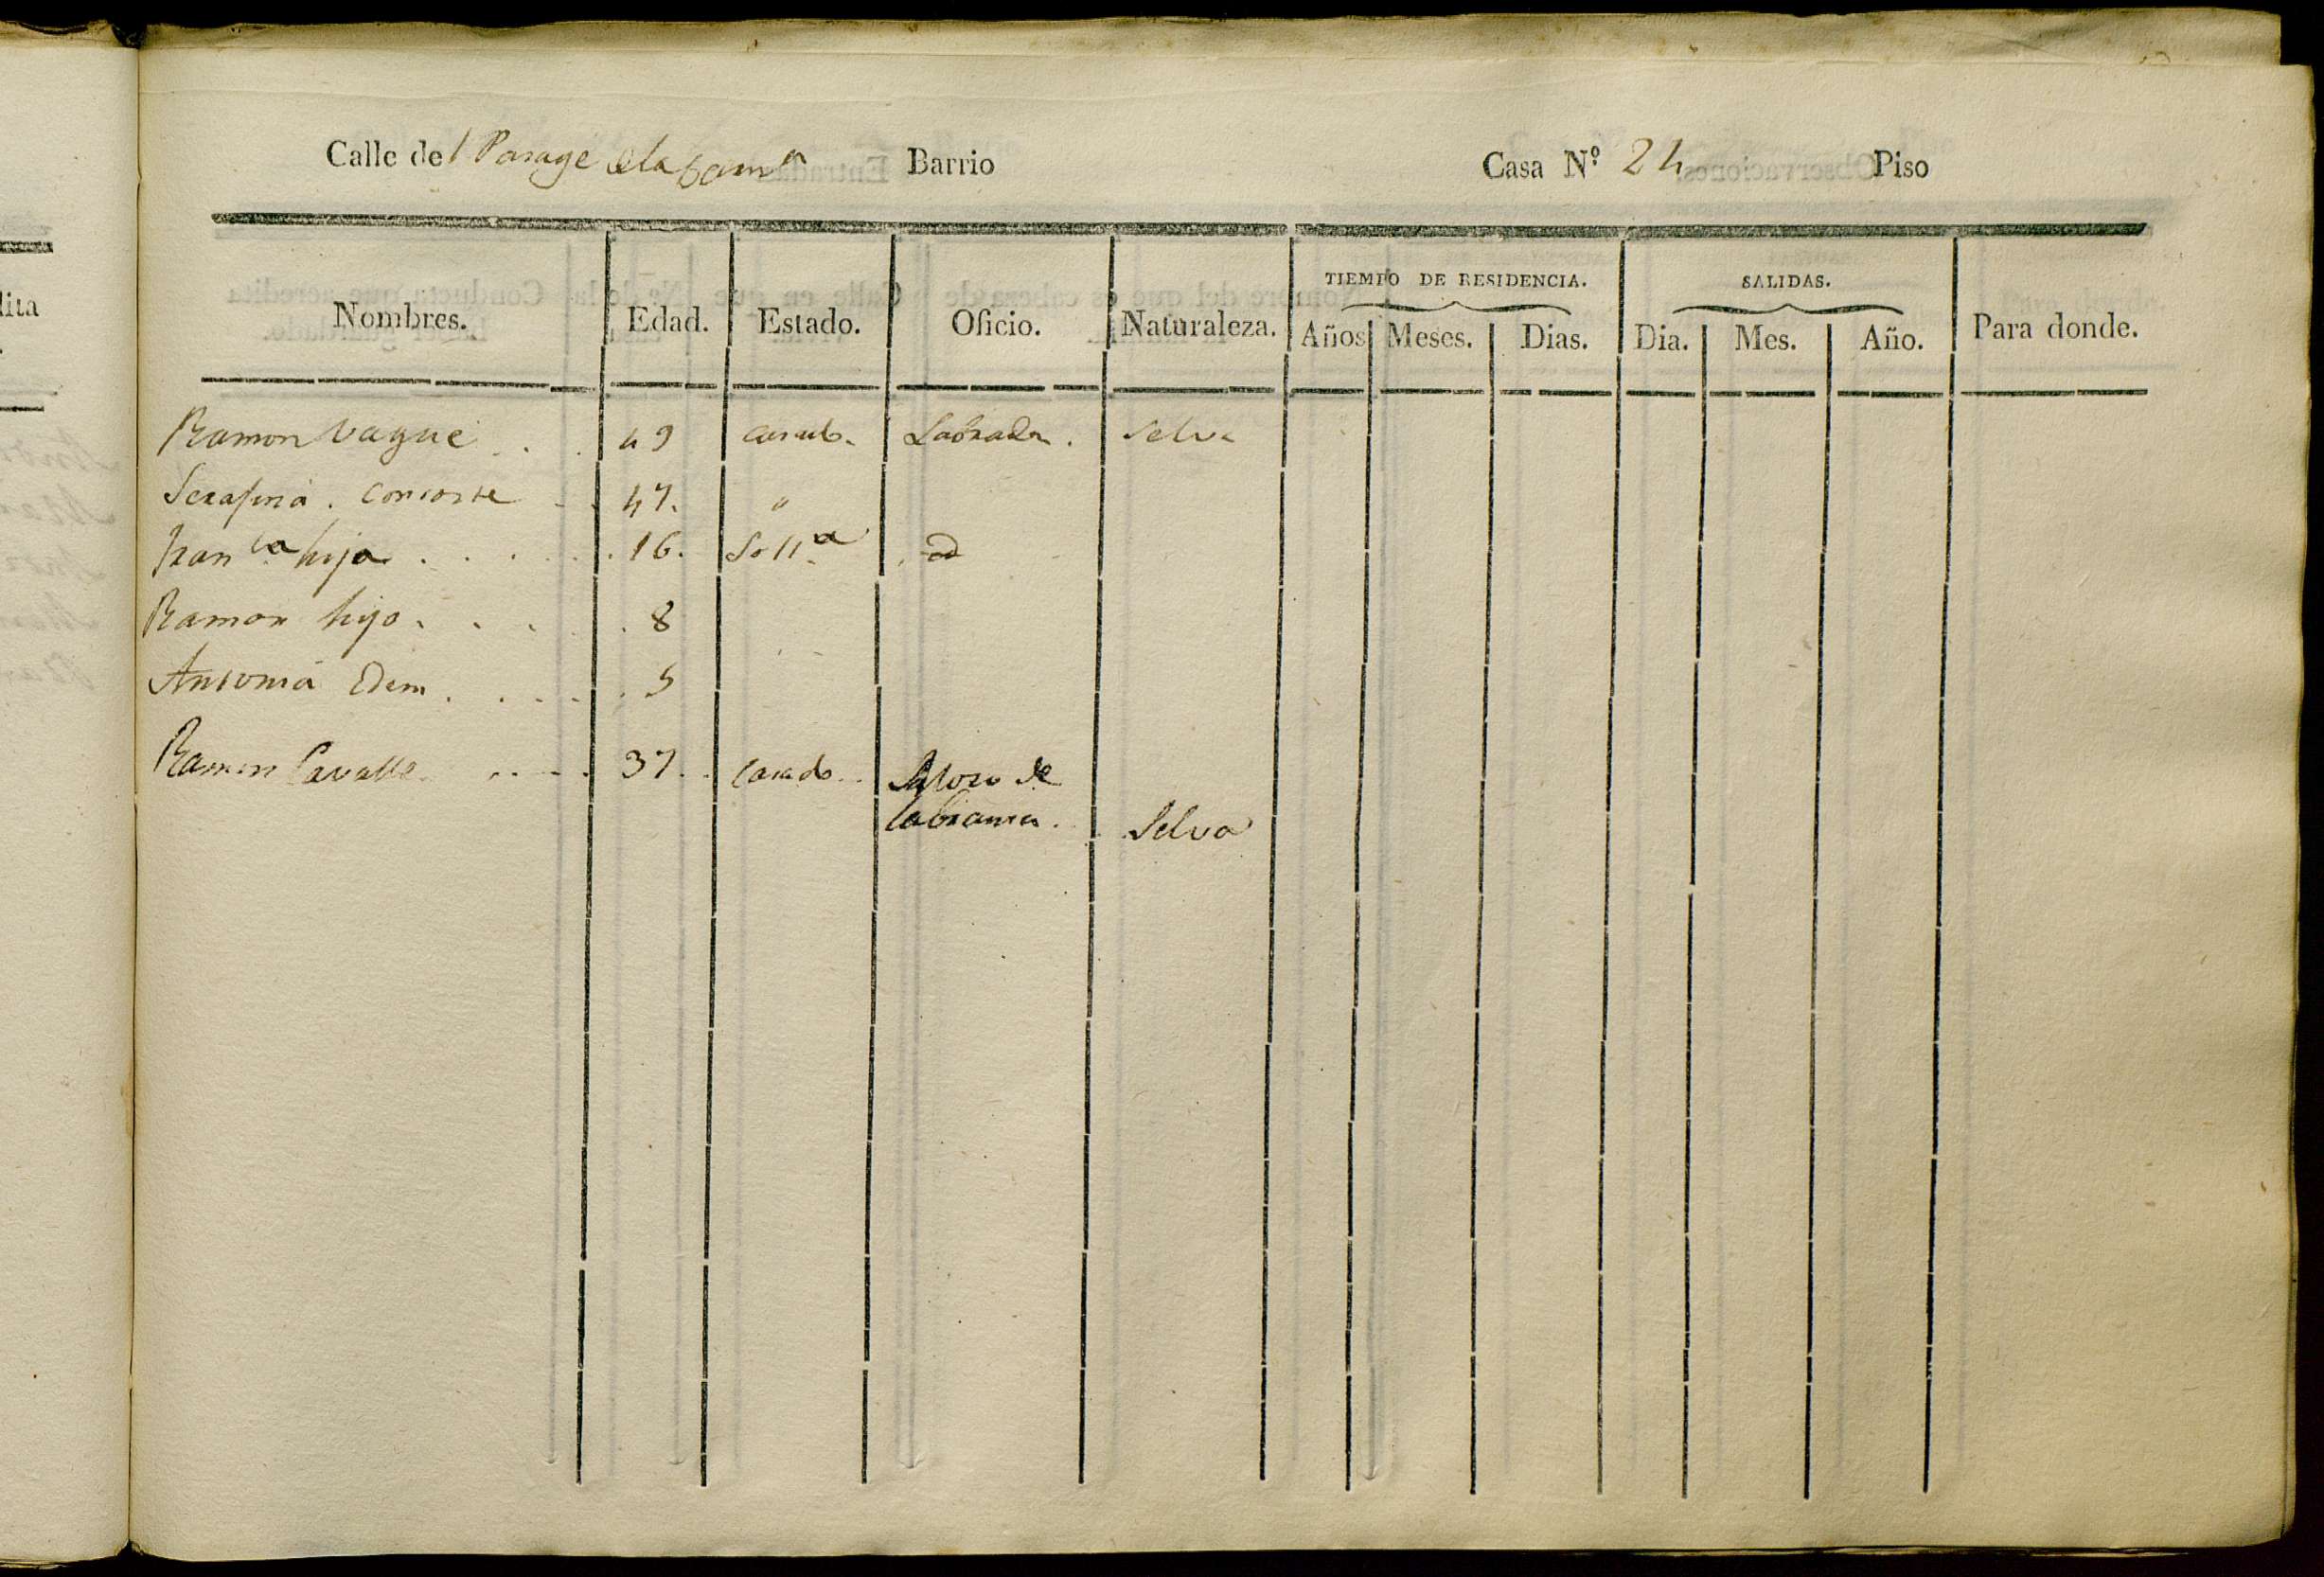 Calle del Parage Barrio Casa N.º 24 Piso
Nombres. Edad. Estado. Oficio. Naturaleza. TIEMPO DE RESIDENCIA. Años Meses. Dias. SALIDAS. Dia. Mes. Año. Para donde.
Ramon Vague . . . 49 casado. Labrador. Selva
Serafina . Consorte . . 47. "
Fran.ca hija . . . . . 16. Solt.a
Ramon hijo . . . . 8
Antonia Edem . . . . . 5
Ramon Cavalle . . . . 37. . casado . . Mozo de
labranza . . Selva